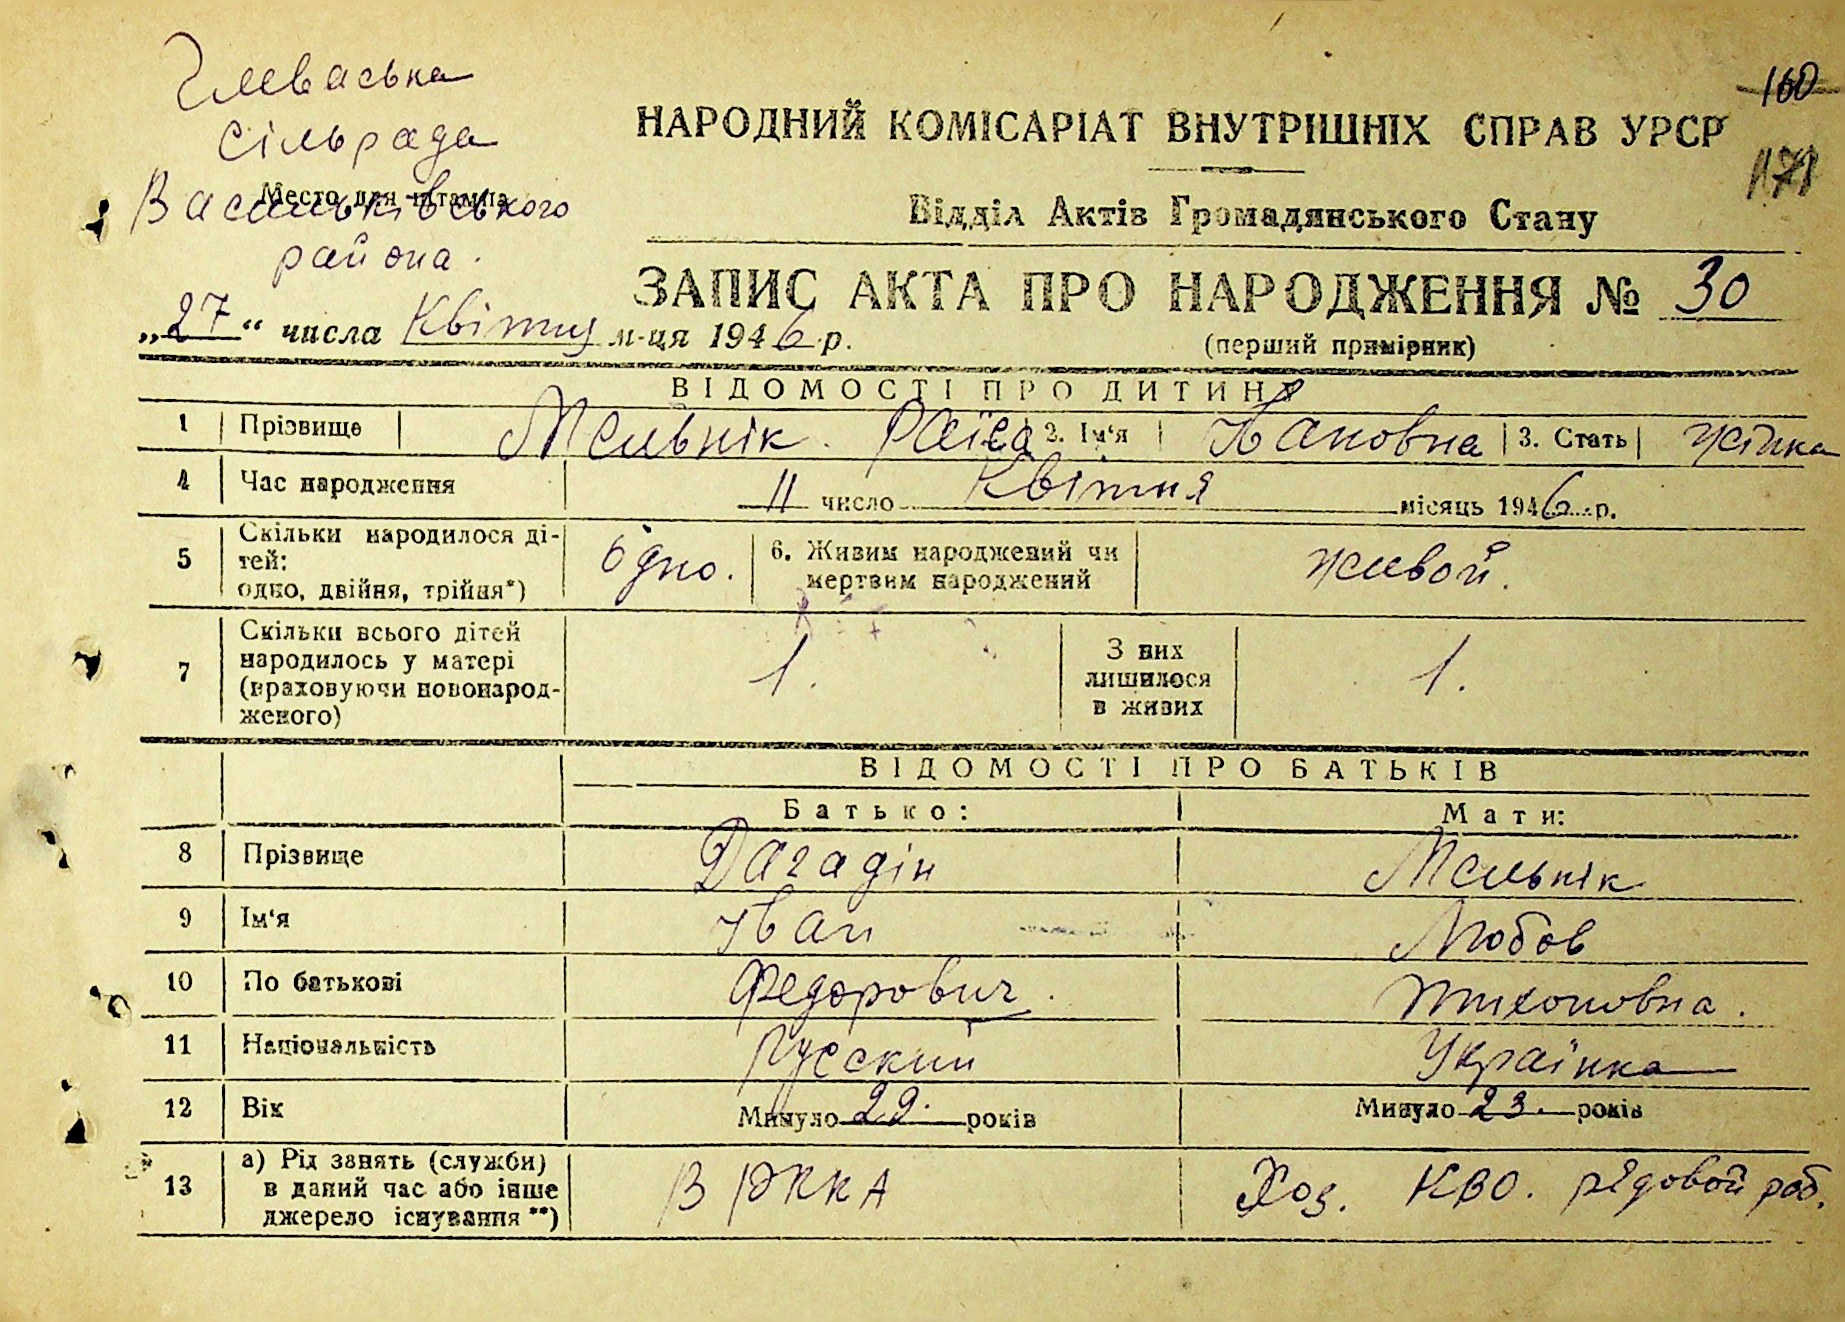 Глеваська
сільрада
Место для штампа
Васильківського
району.
160
171
НАРОДНИЙ КОМІСАРІАТ ВНУТРІШНІХ СПРАВ УРСР
Відділ Актів Громадянського Стану
ЗАПИС АКТА ПРО НАРОДЖЕННЯ № 30
„27“ числа Квітня м-ця 1946 р.
(перший примірник)
ВІДОМОСТІ ПРО ДИТИНУ
1 Прізвище Мельнік. Раїса 2. Ім'я Івановна 3. Стать жінка
4 Час народження 11 число Квітня місяць 1946 р.
5 Скільки народилося ді-
тей:
одно, двійня, трійня*) одно. 6. Живим народжений чи
мертвим народжений живой.
7 Скільки всього дітей
народилось у матері
(враховуючи новонарод-
женого) 1. З них
лишилося
в живих 1.
ВІДОМОСТІ ПРО БАТЬКІВ
Батько: Мати:
8 Прізвище Дагадін Мельнік
9 Ім'я Іван Любов
10 По батькові Федорович. Тихоновна.
11 Національність Русский Українка
12 Вік Минуло 22. років Минуло 23. років
13 а) Рід занять (служби)
в даний час або інше
джерело існування**) В РККА Хоз. КВО. рядовой раб.